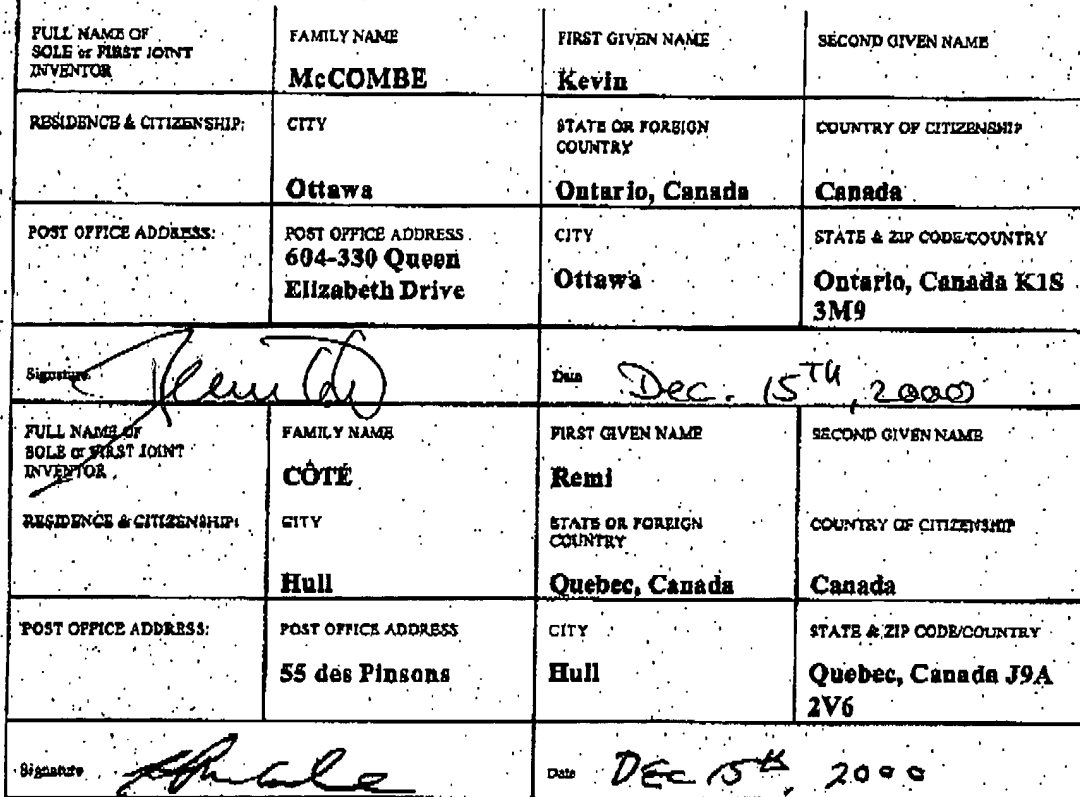 FULL NAME OF
SOLE or FIRST JOINT
INVENTOR
FAMILY NAME
McCOMBE
FIRST GIVEN NAME
Kevin
SECOND GIVEN NAME
RESIDENCE & CITIZENSHIP:
CITY
Ottawa
STATE OR FOREIGN
COUNTRY
Ontario, Canada
COUNTRY OF CITIZENSHIP
Canada
POST OFFICE ADDRESS:
POST OFFICE ADDRESS
604-330 Queen
Elizabeth Drive
CITY
Ottawa
STATE & ZIP CODE/COUNTRY
Ontario, Canada K1S
3M9
Signature
Date Dec. 15TH, 2000
FULL NAME OF
SOLE or FIRST JOINT
INVENTOR
FAMILY NAME
CÔTÉ
FIRST GIVEN NAME
Remi
SECOND GIVEN NAME
RESIDENCE & CITIZENSHIP:
CITY
Hull
STATE OR FOREIGN
COUNTRY
Quebec, Canada
COUNTRY OF CITIZENSHIP
Canada
POST OFFICE ADDRESS:
POST OFFICE ADDRESS
55 des Pinsons
CITY
Hull
STATE & ZIP CODE/COUNTRY
Quebec, Canada J9A
2V6
Signature
Date DEC 15th, 2000